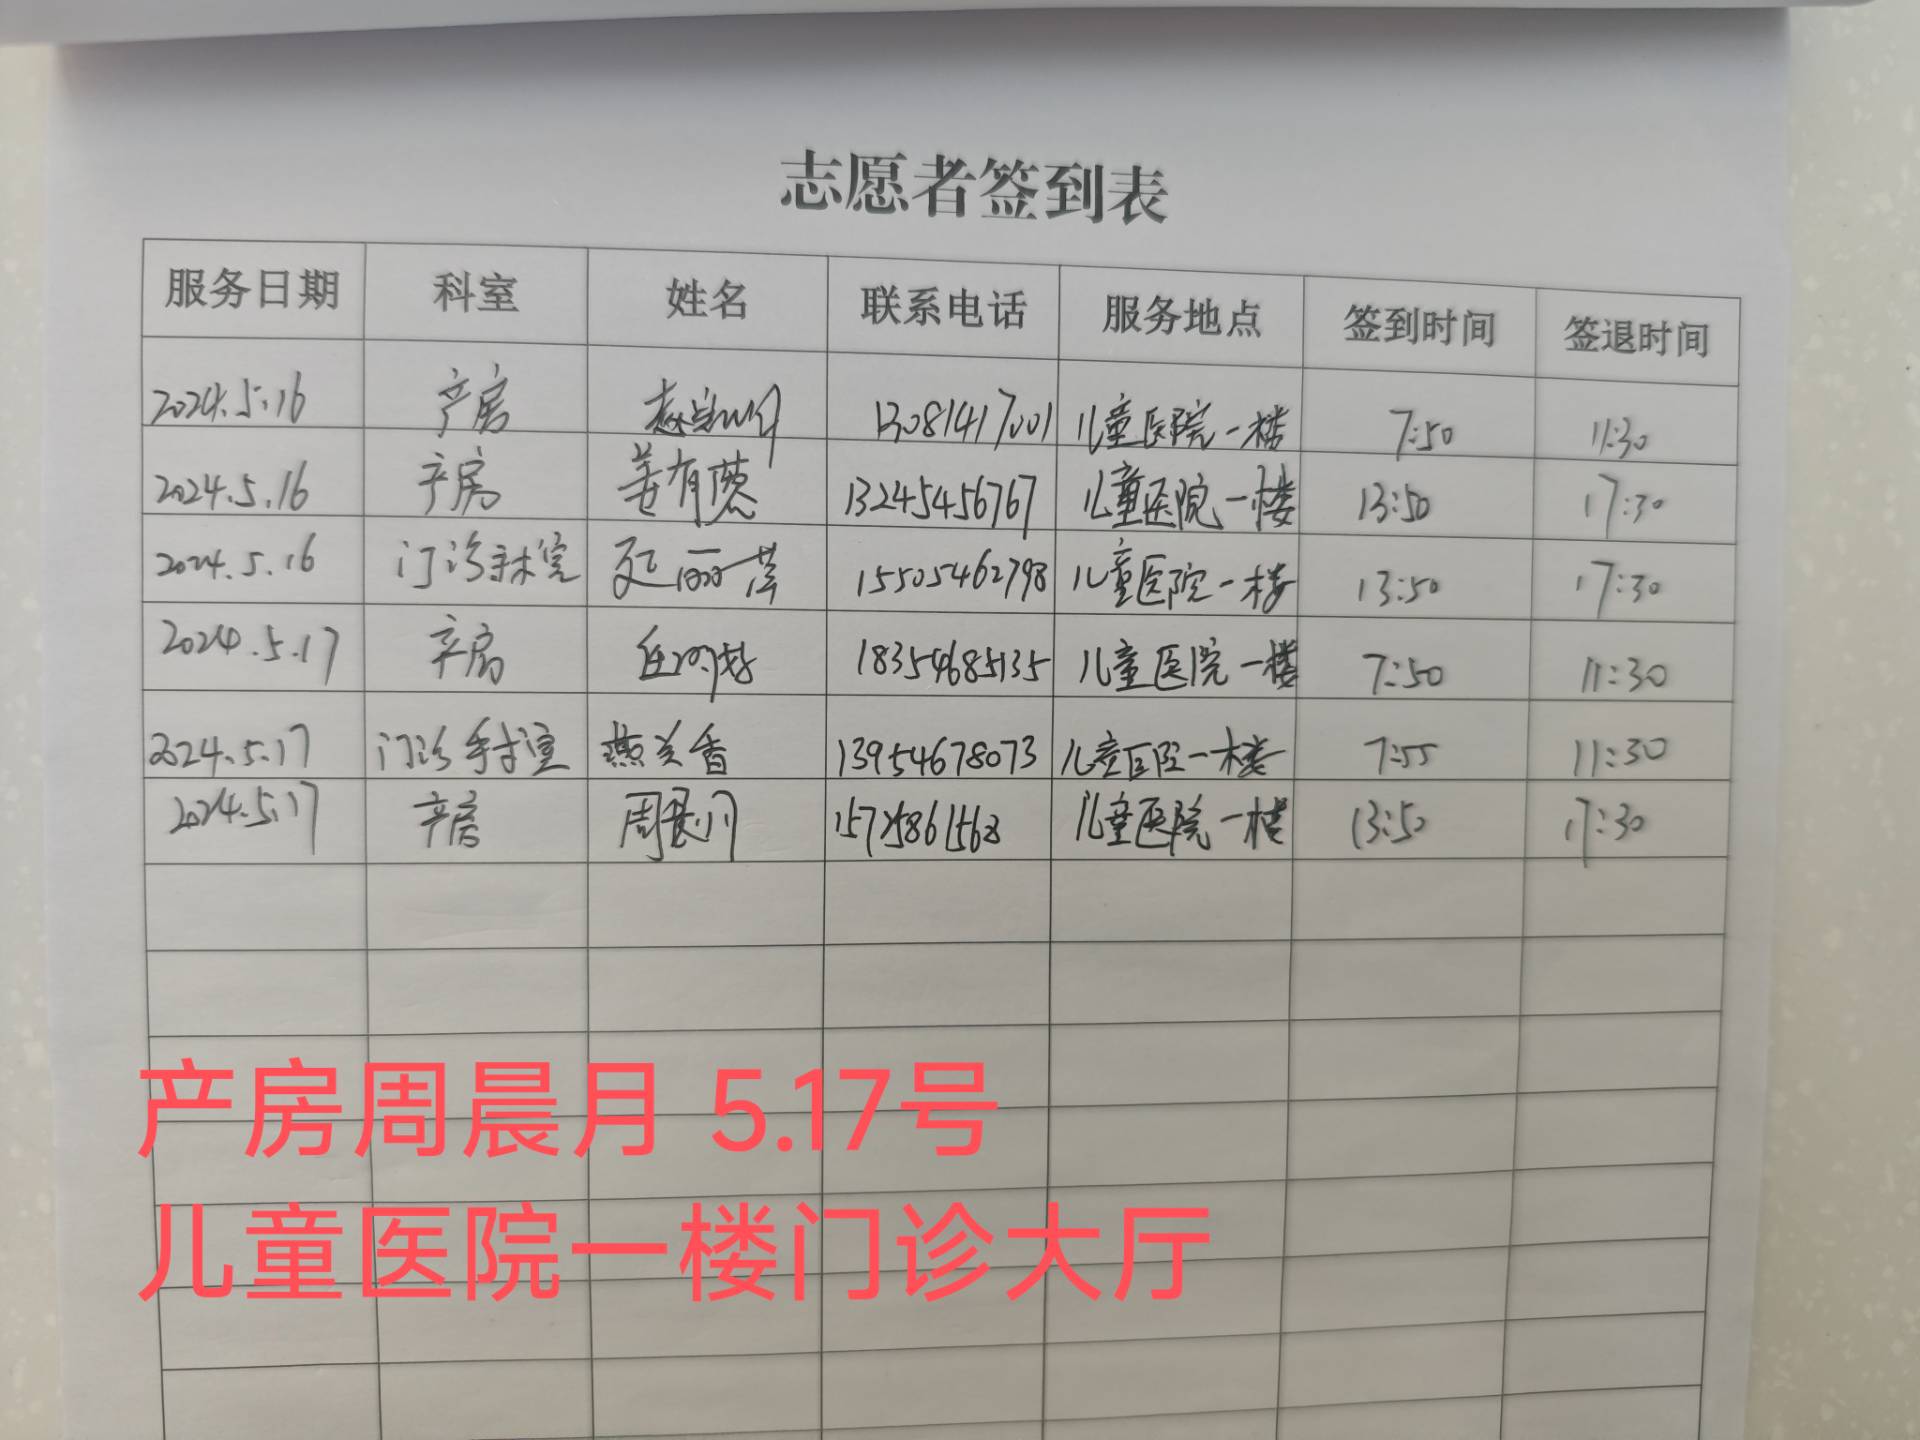 志愿者签到表
服务日期 科室 姓名 联系电话 服务地点 签到时间 签退时间
2024.5.16 产房 13081417001 儿童医院一楼 7:50 11:30
2024.5.16 产房 姜有葱 13245456767 儿童医院一楼 13:50 17:30
2024.5.16 门诊手术室 延丽萍 15505462798 儿童医院一楼 13:50 17:30
2024.5.17 产房 18354685135 儿童医院一楼 7:50 11:30
2024.5.17 门诊手术室 燕兰香 13954678073 儿童医院一楼 7:55 11:30
2024.5.17 产房 周晨月 儿童医院一楼 13:50 17:30
产房周晨月 5.17号
儿童医院一楼门诊大厅